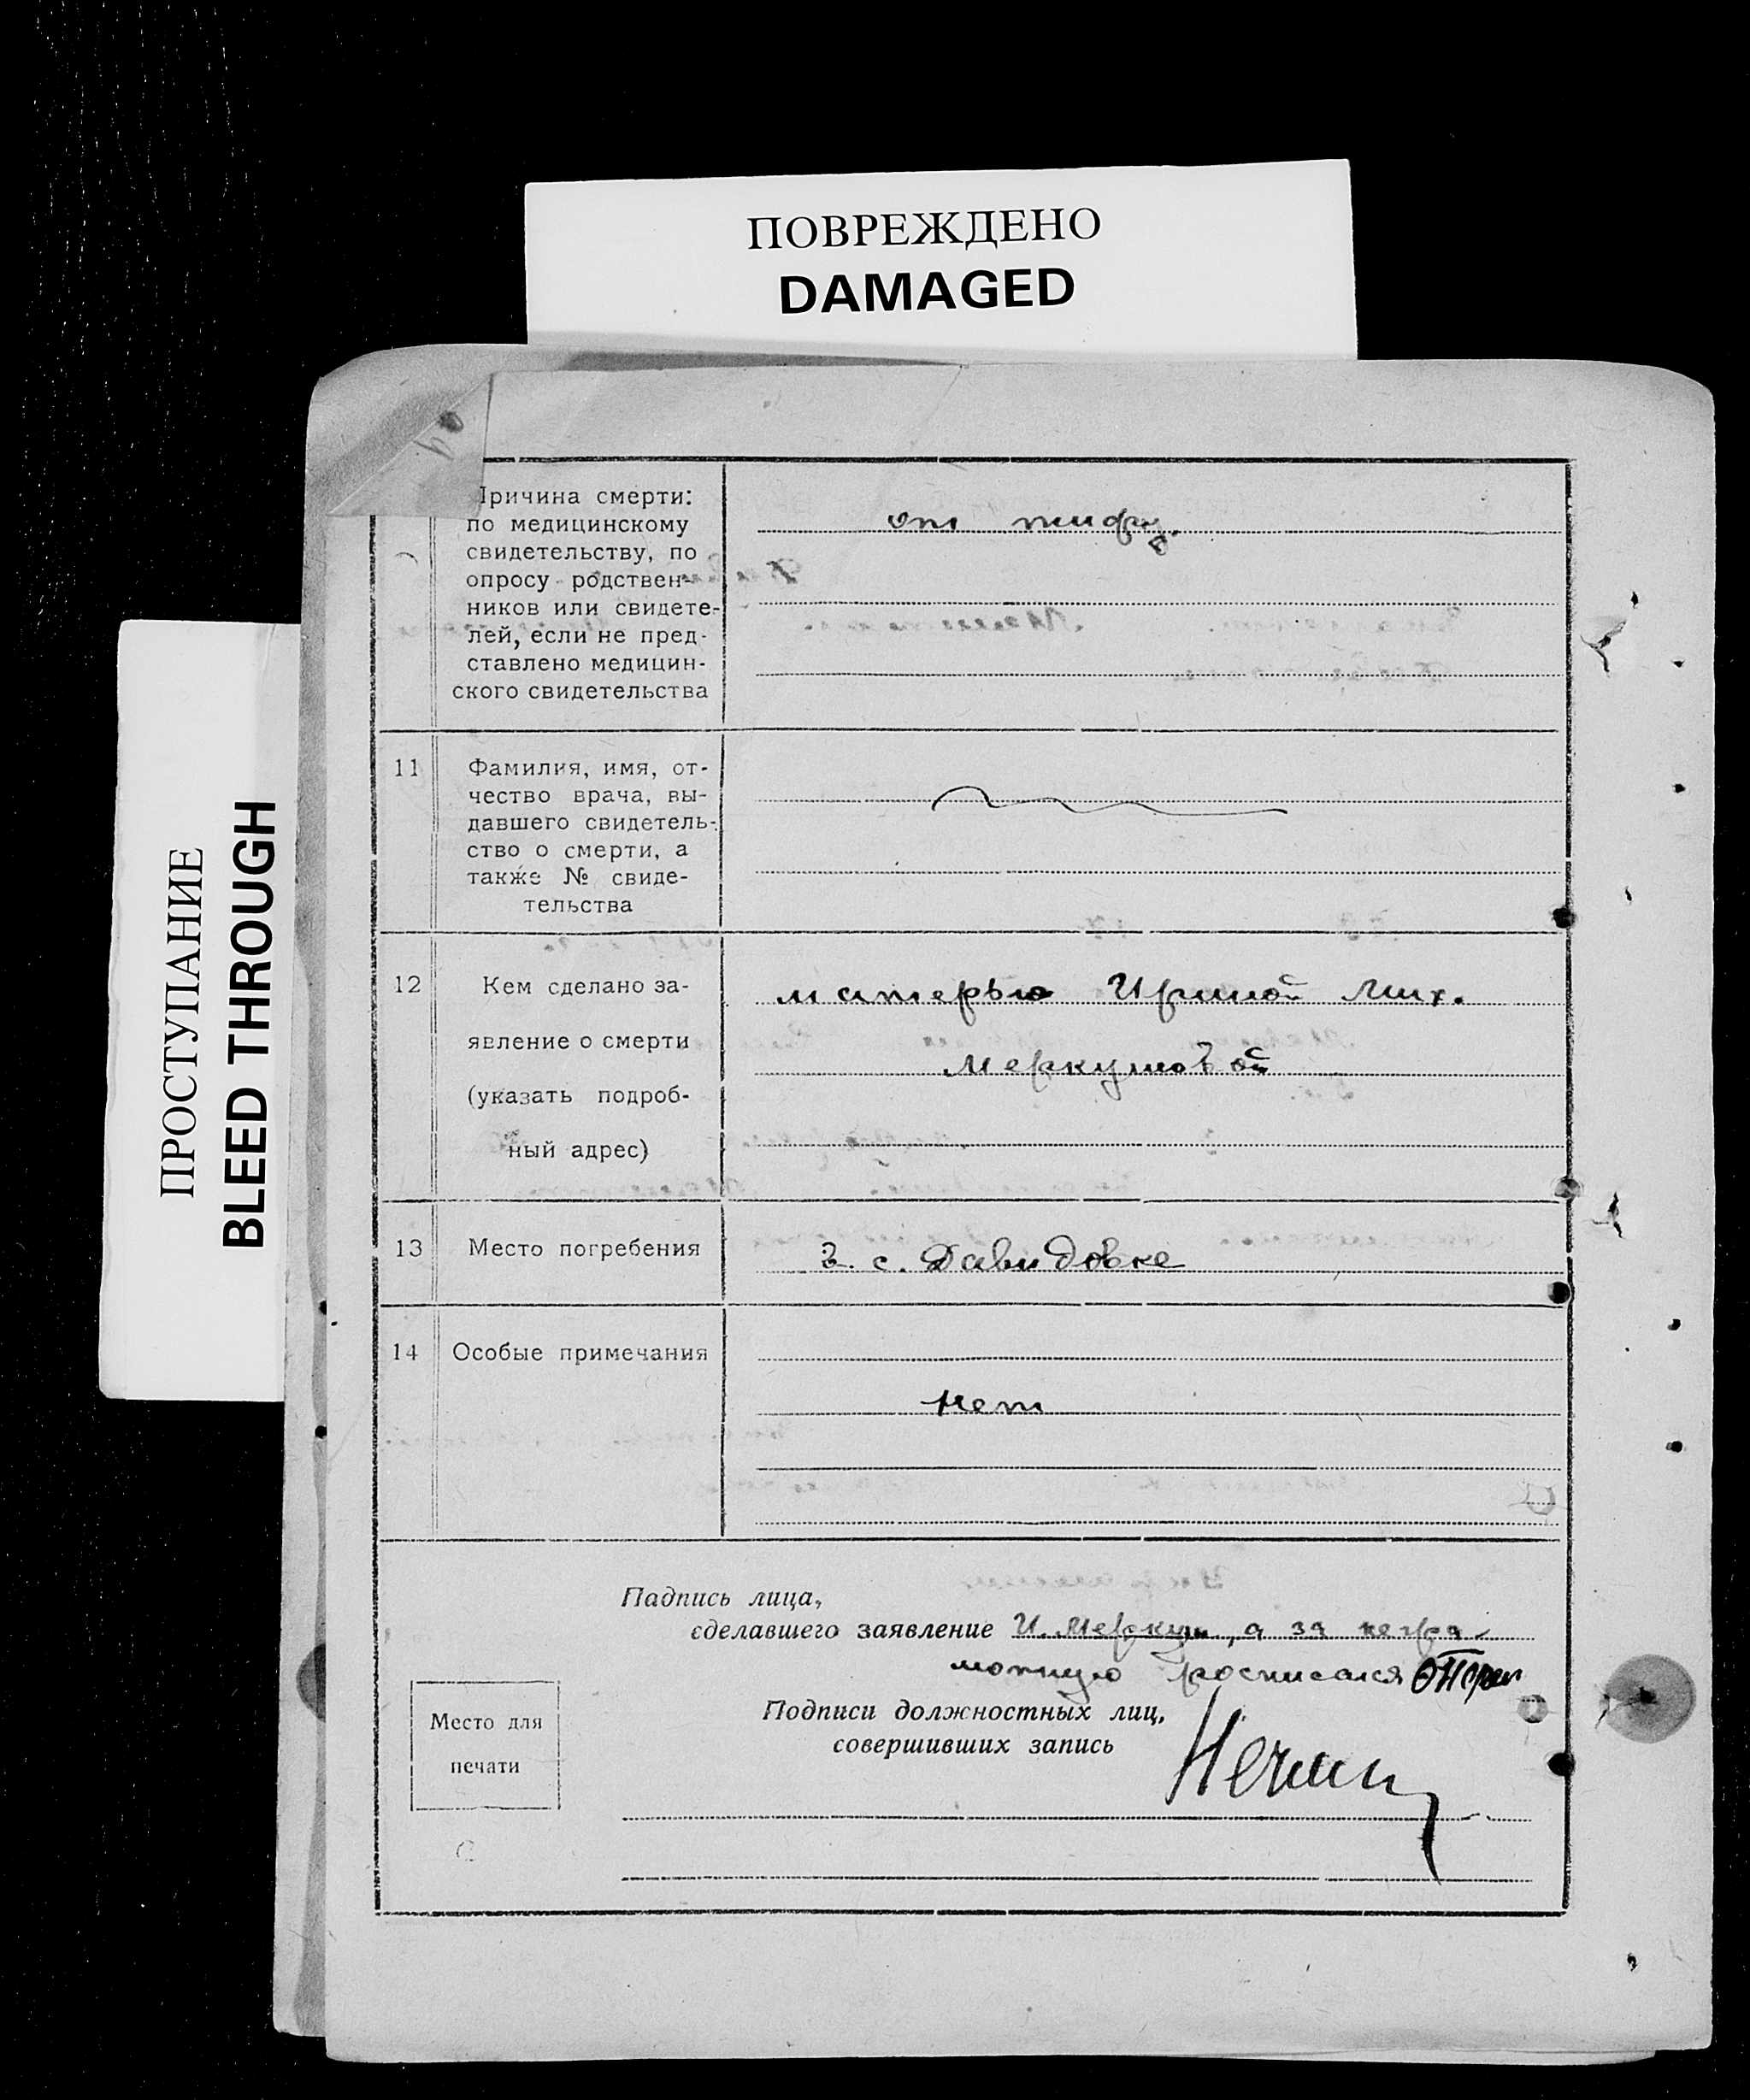 ПОВРЕЖДЕНО
DAMAGED
ПРОСТУПАНИЕ
BLEED THROUGH
Причина смерти:
по медицинскому
свидетельству, по
опросу родствен-
ников или свидете-
лей, если не пред-
ставлено медицин-
ского свидетельства
от тифу.
11
Фамилия, имя, от-
чество врача, вы-
давшего свидетель-
ство о смерти, а
также № свиде-
тельства
12
Кем сделано за-
явление о смерти
(указать подроб-
ный адрес)
матерью Ириной Мих.
Меркушовой
13 Место погребения
в с. Давидовке
14 Особые примечания
нет
Падпись лица,
сделавшего заявление И. Меркуш, а за негра-
мотную росписался
Подписи должностных лиц,
совершивших запись
Место для
печати